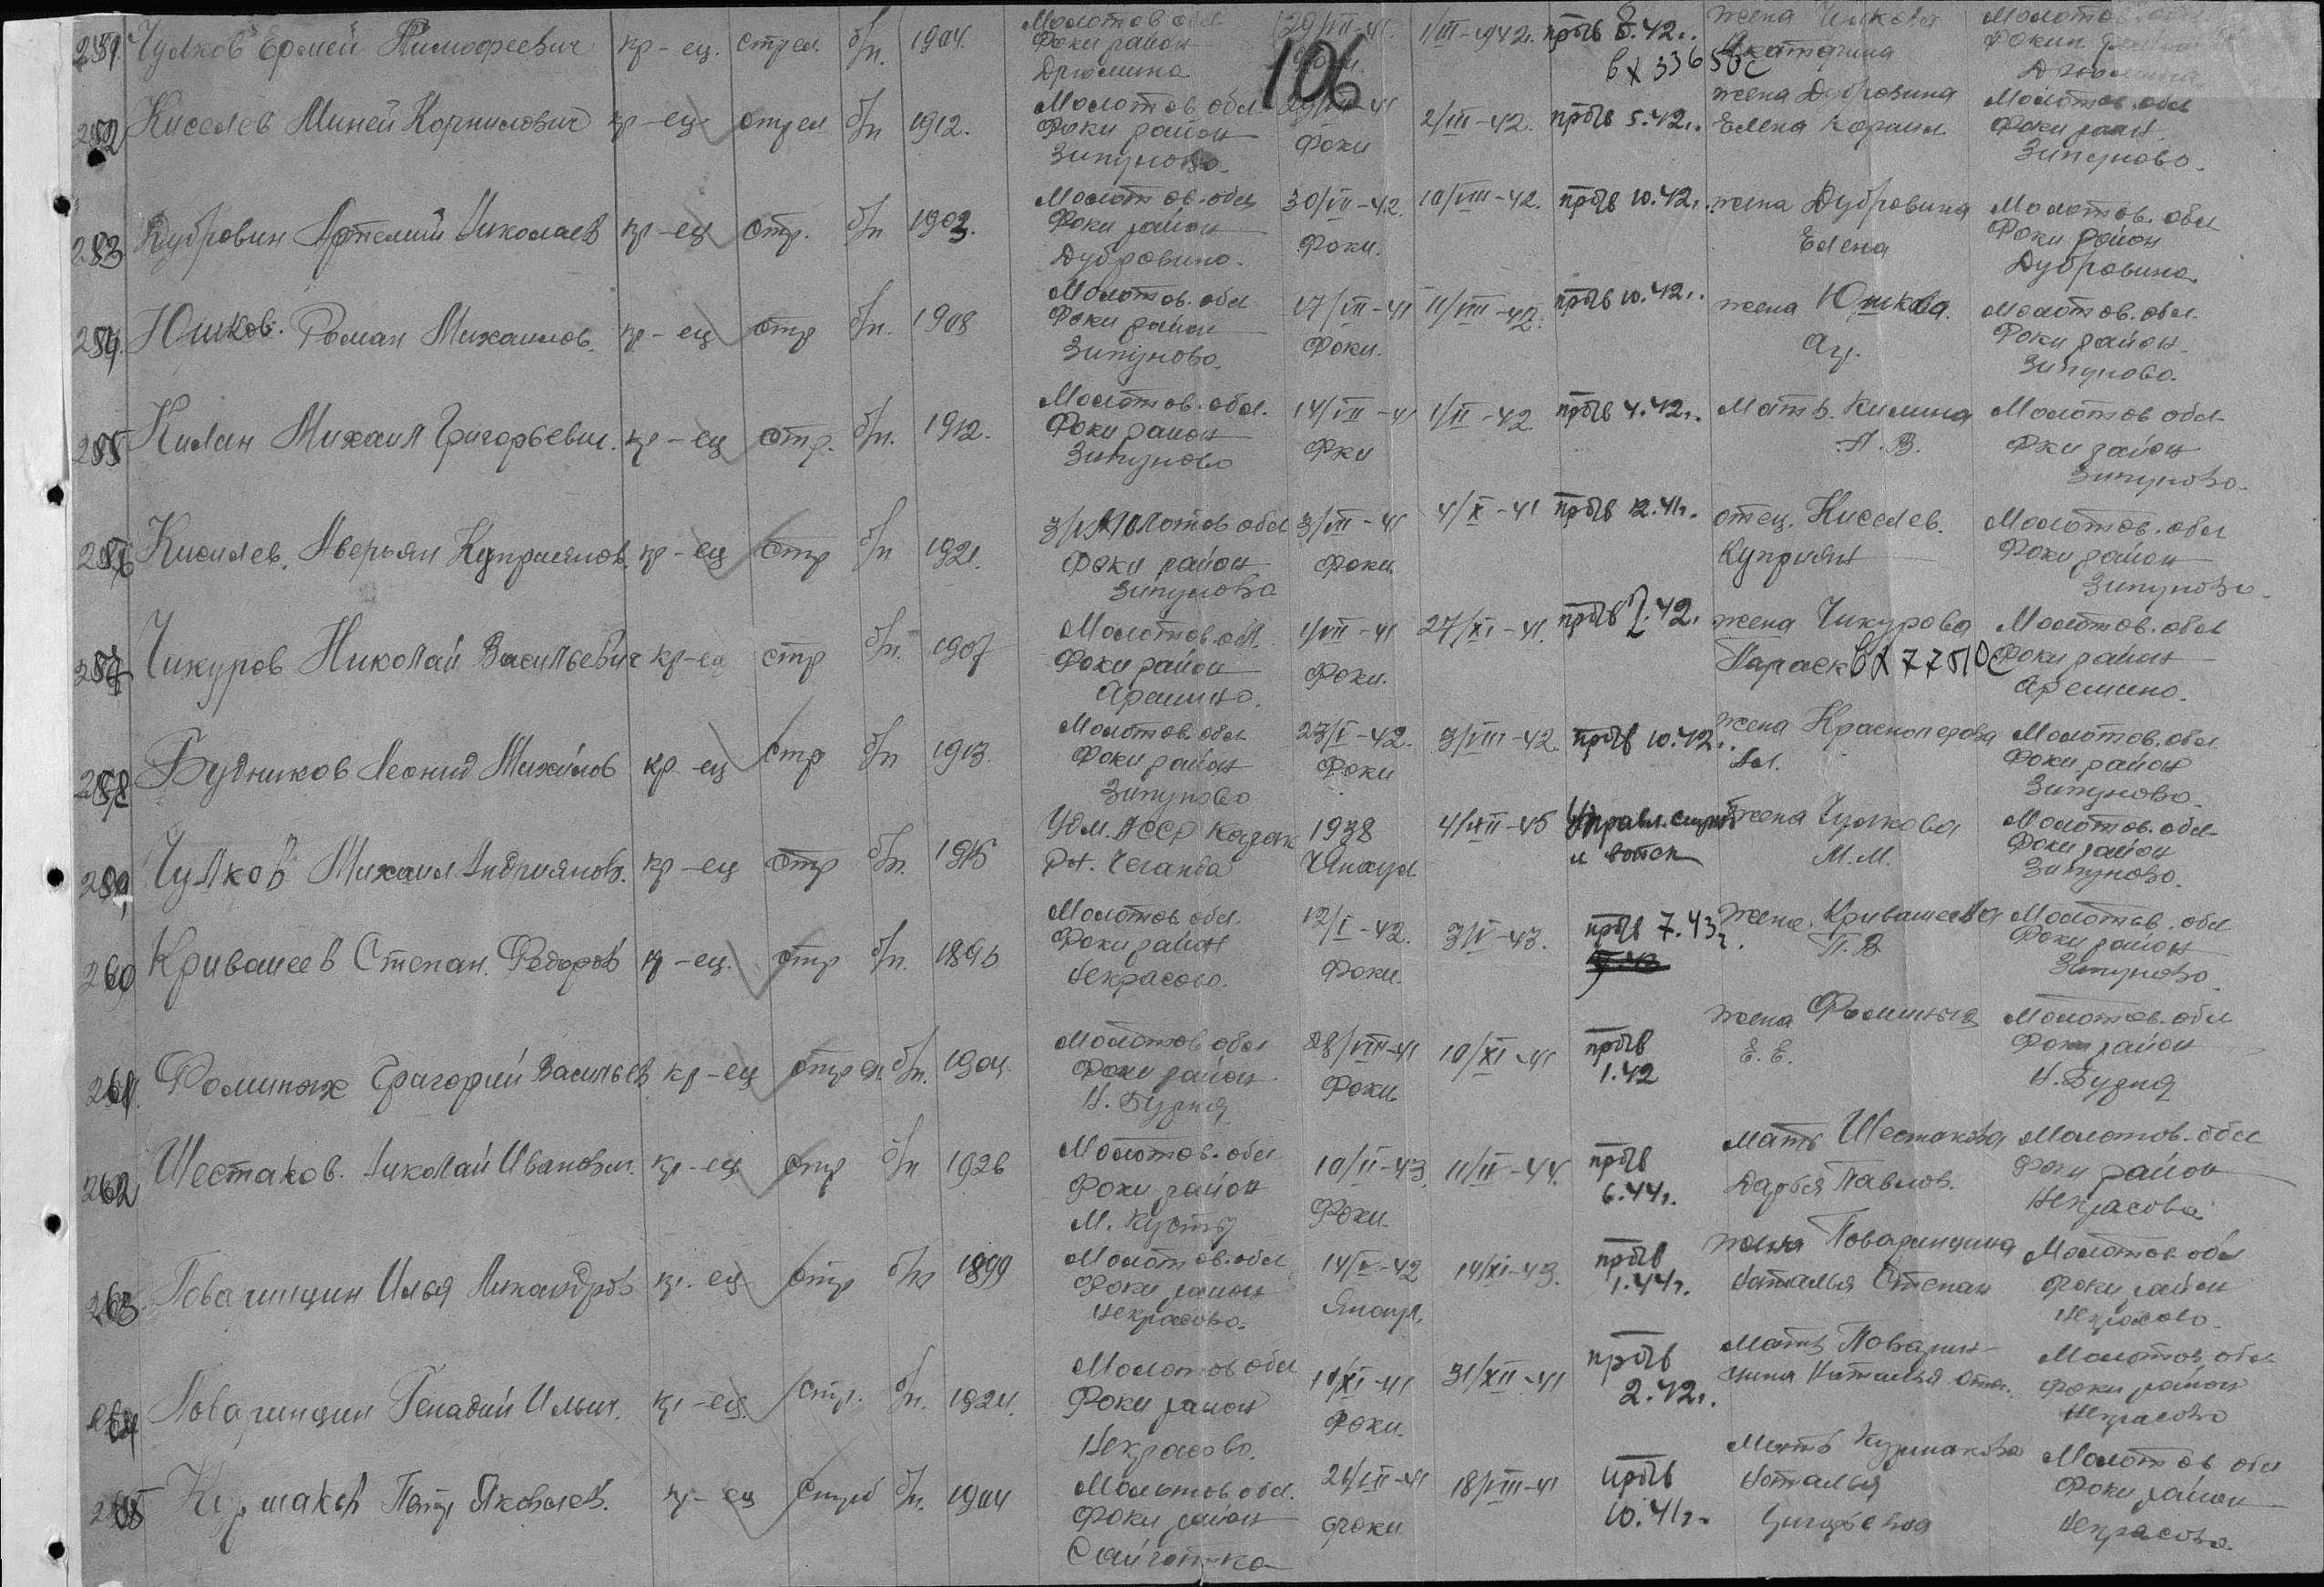 251. Чулков Ермей Тимофеевич кр-ец. стрел б/п. 1904. Молотов обл Фоки район Дрюмина 29/VII-41. 1/III-1942г. пр б/в 8.42г. жена Чулкова Екатерина Молотов Фокин Дрюмина
106
вх 33650с
252 Киселев Миней Корнилович кр-ец стрел б/п 1912. Молотов обл Фоки район Зипуново. 29/VII-41 Фоки 2/III-42. пр б/в 5.42г. жена Дубровина Елена Корнил. Молотов. обл Фоки район Зипуново.
253 Дубровин Артемий Николаев кр-ец стр. б/п 1903. Молотов. обл Фоки район Дубровино. 30/VII-42. Фоки. 10/VIII-42. пр б/в 10.42г. жена Дубровина Елена Молотов. обл Фоки район Дубровино.
254. Юшков. Роман Михаилов. кр-ец стр б/п. 1908 Молотов. обл Фоки район Зипуново. 17/VII-41 Фоки. 11/VIII-42. пр б/в 10.42г. жена Юшкова. Аг. Молотов. обл. Фоки район. Зипуново.
255 Килин Михаил Григорьевич. кр-ец стр. б/п. 1912. Молотов. обл. Фоки район Зипуново 14/VII-41 Фки 1/II-42 пр б/в 4.42г. Мать. Килина А. В. Молотов обл Фки район Зипуново.
256 Киселев. Аверьян Куприянов. кр-ец стр б/п 1921. Молотов обл Фоки район Зипуново 3/VII-41 Фоки. 4/X-41 пр б/в 12.41г. отец. Киселев. Куприян Молотов. обл Фоки район Зипуново.
257 Чикуров Николай Васильевич кр-ец стр б/п. 1907 Молотов. обл. Фоки район Арешино. 1/VII-41 Фоки. 27/XI-41. пр б/в 2.42г. жена Чикурова Параск вх 77510с Молотов. обл Фоки район Арешино.
258 Будников Леонид Михайлов кр-ец стр б/п 1913. Молотов. обл Фоки район Зипуново 23/I-42. Фоки 3/VIII-42. пр б/в 10.42г. жена Красноперова Ал. Молотов. обл. Фоки район Зипуново.
259 Чулков Михаил Андриянов. кр-ец стр б/п. 1915 Удм. АССР Каракк Рн. Чеганда 1938 Янаул 4/XII-45 Управл. снаб и войск жена Чулкова М. М. Молотов. обл Фоки район Зипуново.
260 Кривашеев Степан. Федоров кр-ец. стр б/п. 1896 Молотов. обл. Фоки район Некрасово. 12/I-42. Фоки. 3/V-43. пр б/в 7.43г. жена. Кривашеева П. Я. Молотов. обл Фоки район Зипуново.
261. Фоминых Григорий Васильев кр-ец стрел. б/п. 1904. Молотов обл Фоки район Н. Бузгия 28/VIII-41 Фоки 10/XI-41 пр б/в 1.42 жена Фоминых Е. Е. Молотов. обл Фоки район Н. Бузгия
262 Шестаков. Николай Иванович. кр-ец стр б/п 1926 Молотов. обл Фоки район М. Кусты 10/II-43. Фоки. 11/II-44. пр б/в 6.44г. Мать Шестакова Дарья Павлов. Молотов. обл Фоки район Некрасово
263. Поваринцин Илья Никандров кр-ец стр б/п 1899 Молотов. обл Фоки район Некрасово. 14/V-42 Янаул. 14/XI-43. пр б/в 1.44г. жена Поваринцина Наталья Степан Молотов. обл Фоки район Некрасово.
264 Поваринцин Генадий Ильич. кр-ец. стр. б/п. 1924. Молотов обл Фоки район Некрасово. 10/XI-41 Фоки. 31/XII-41 пр б/в 2.42г. Мать Поварин-цина Наталья Степ. Молотов. обл Фоки район Некрасово
265 Курмаков Петр Яковлев. кр-ец б/п. 1904 Молотов обл. Фоки район Сайгатка 26/VII-41 Фоки 18/VIII-41 пр б/в 10.41г. Мать Курмакова Наталья Молотов обл Фоки район Некрасово.